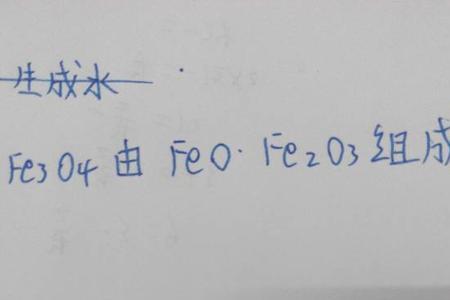 生成水
Fe₃O₄由 FeO·Fe₂O₃组成